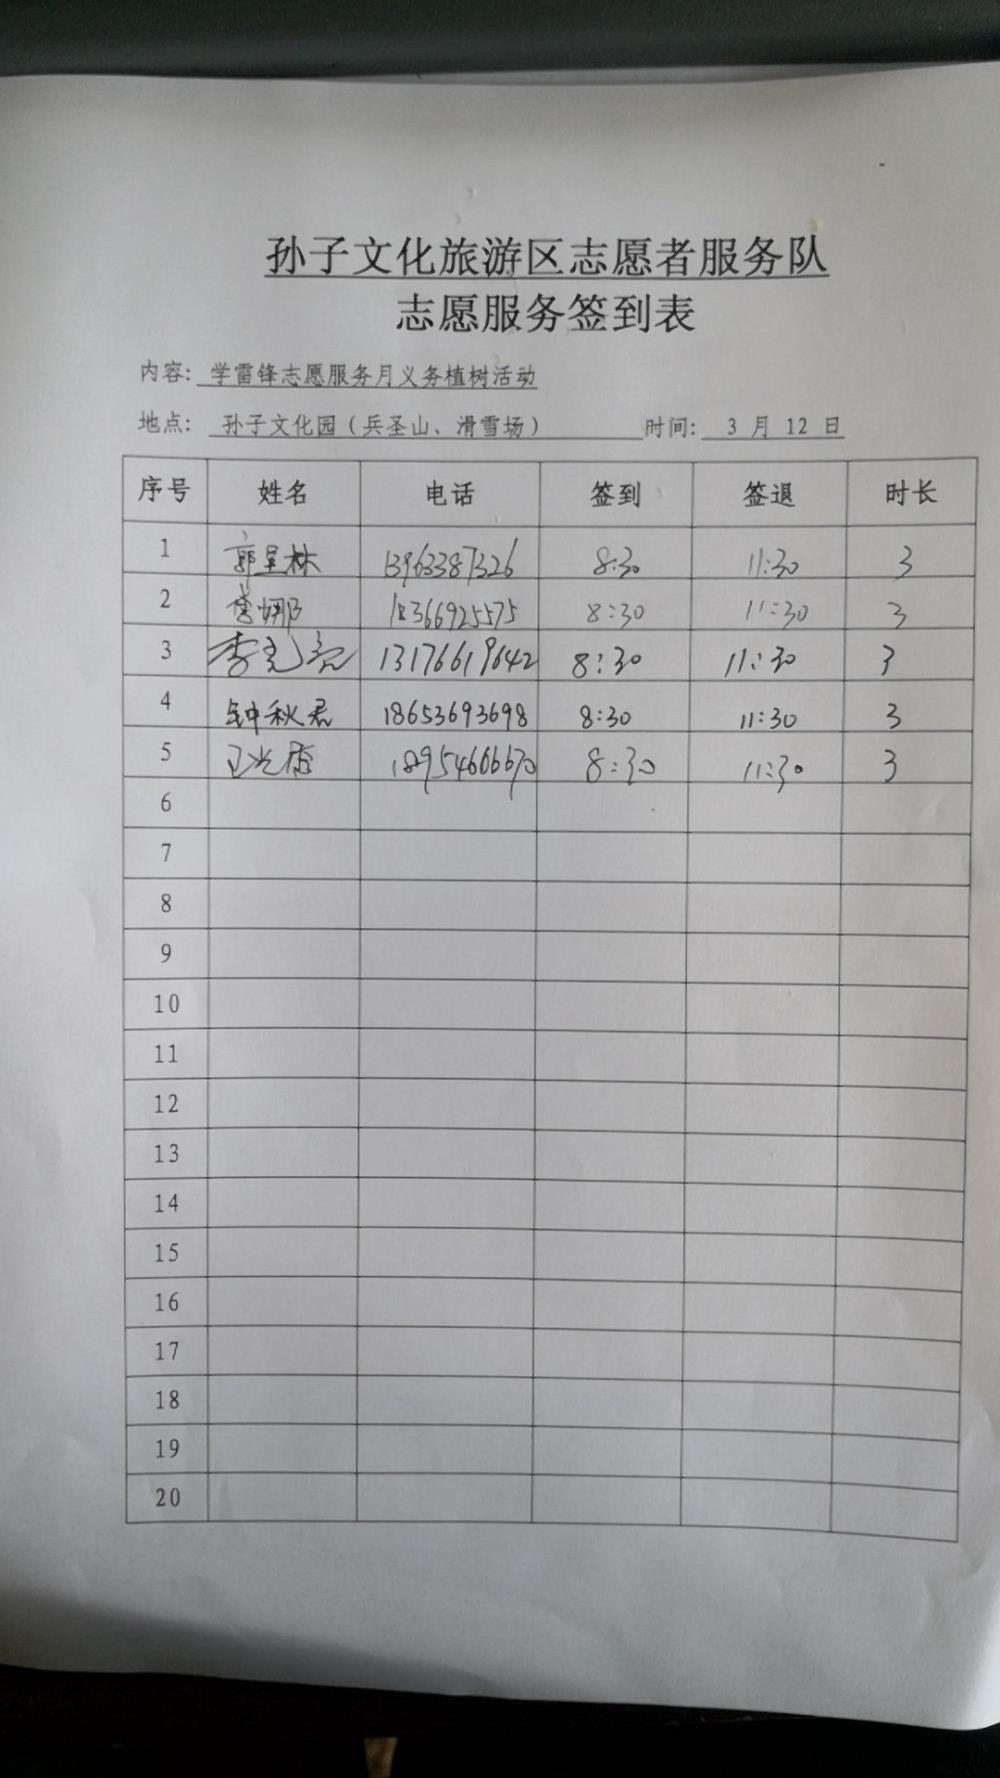 孙子文化旅游区志愿者服务队
志愿服务签到表
内容: 学雷锋志愿服务月义务植树活动
地点: 孙子文化园（兵圣山、滑雪场） 时间: 3 月 12 日
序号 姓名 电话 签到 签退 时长
1 郭呈林 13963387326 8:30 11:30 3
2 娜 18366925575 8:30 11:30 3
3 李 13176619642 8:30 11:30 3
4 钟秋君 18653693698 8:30 11:30 3
5 王 18954666670 8:30 11:30 3
6
7
8
9
10
11
12
13
14
15
16
17
18
19
20